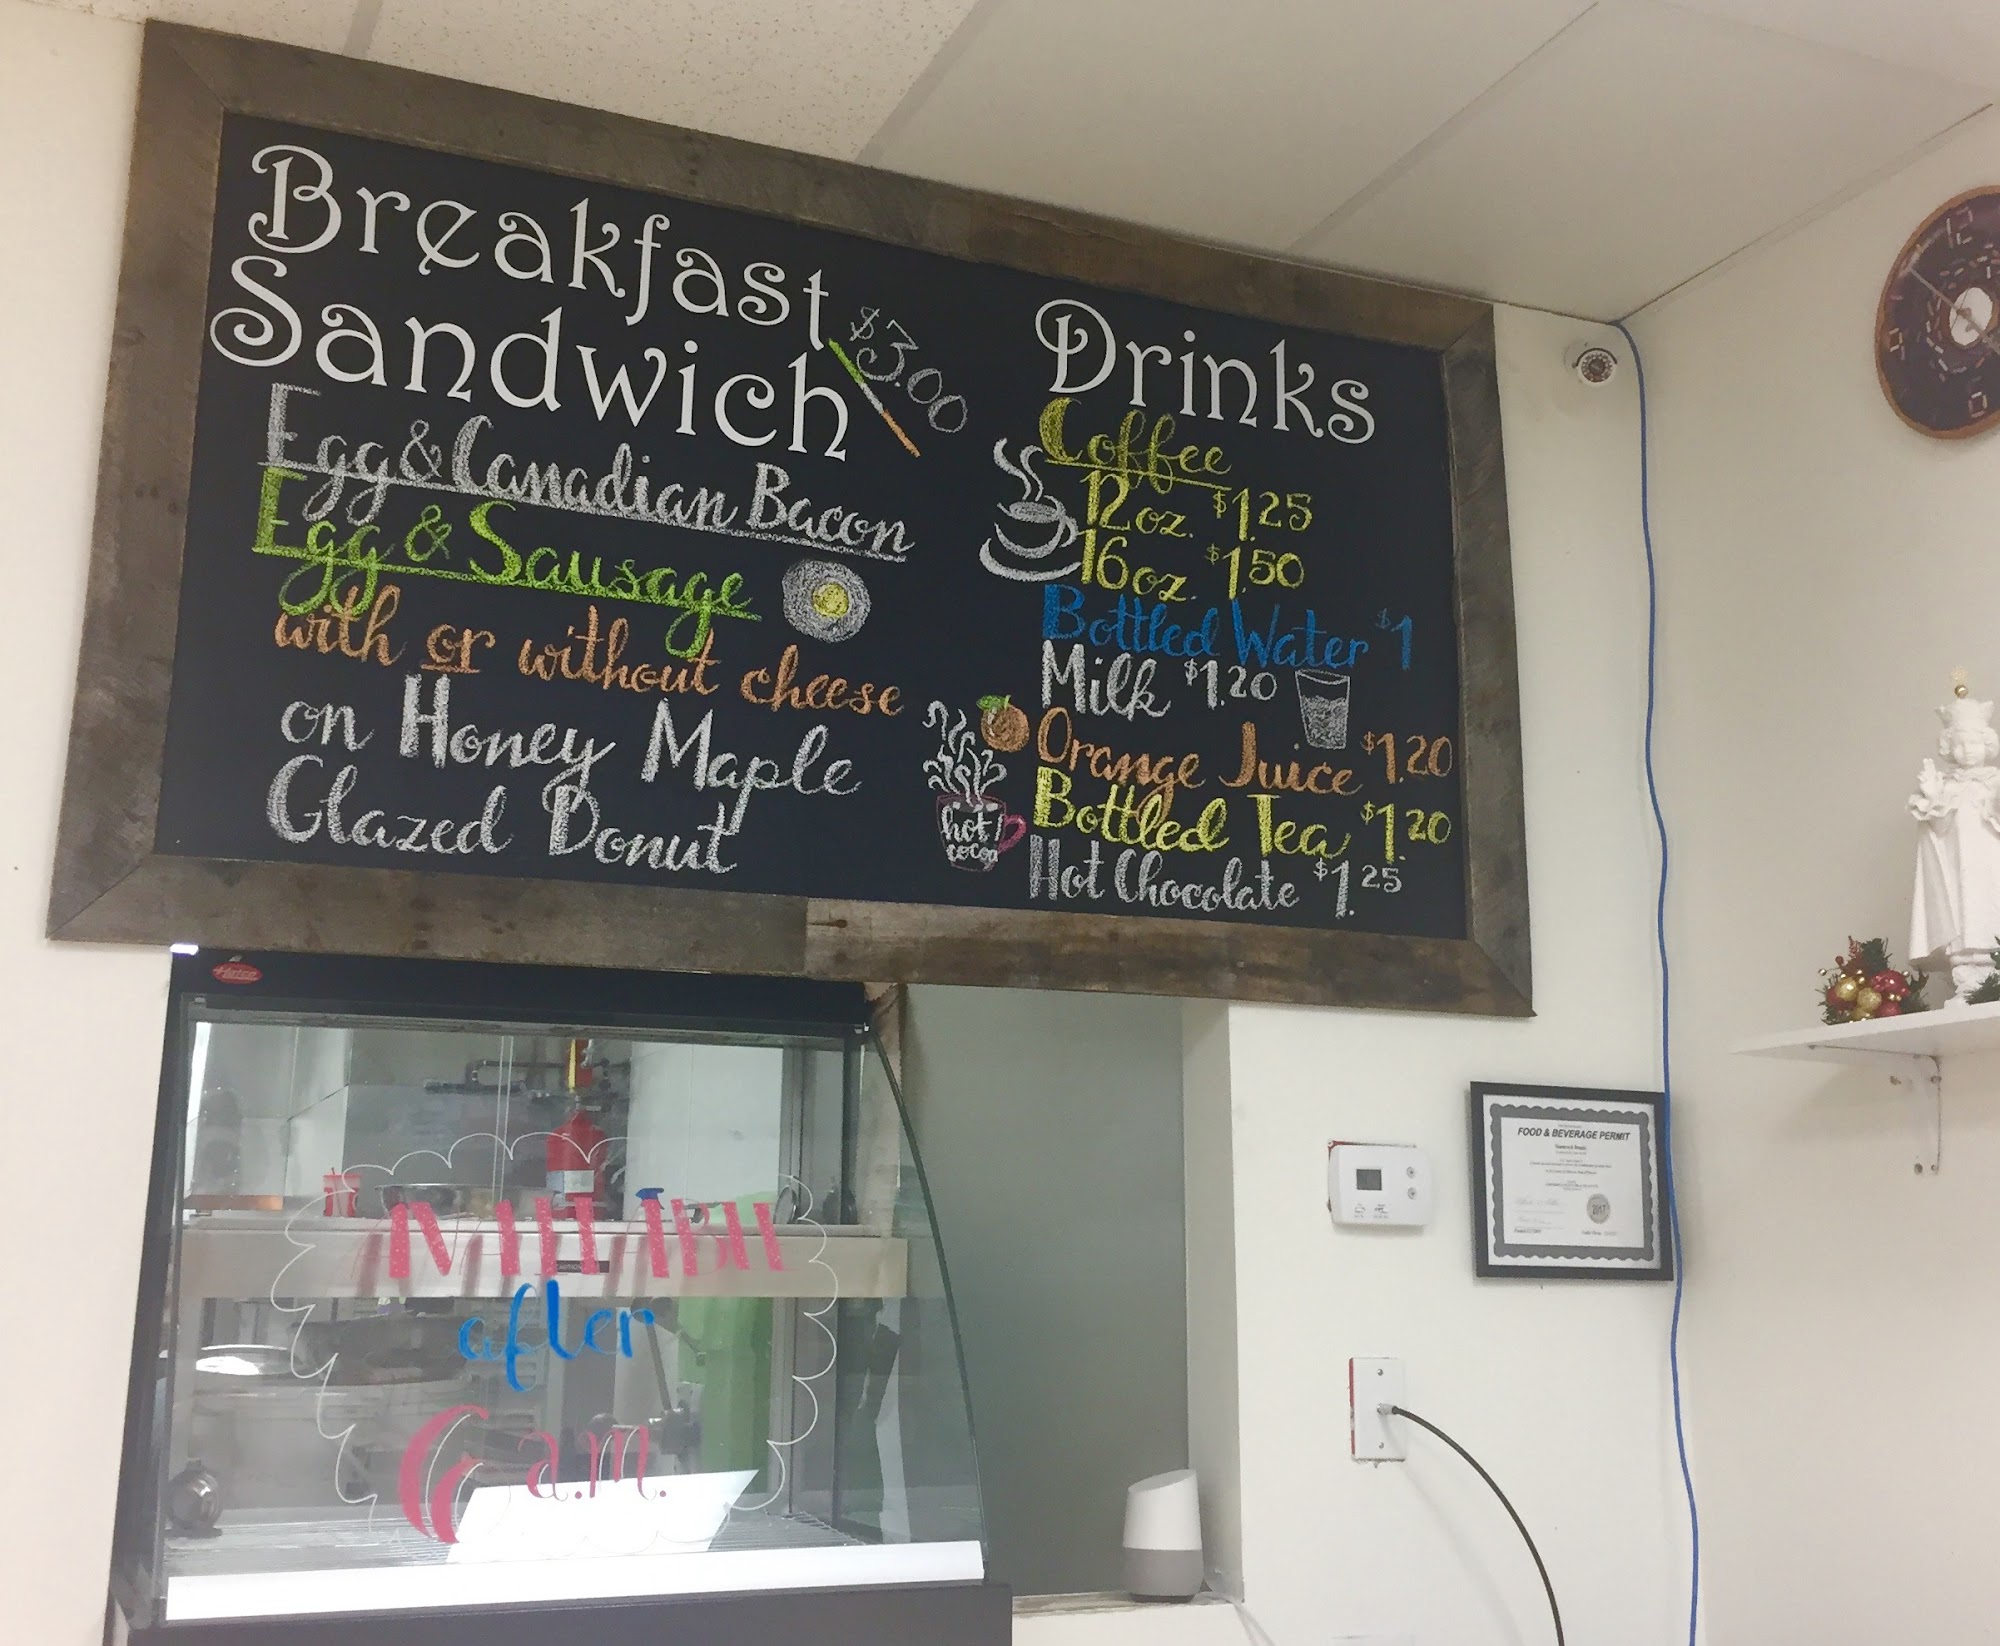 Breakfast
Sandwich
$3.00
Egg & Canadian Bacon
Egg & Sausage
with or without cheese
on Honey Maple
Glazed Donut
Drinks
Coffee
12oz. $1.25
16oz. $1.50
Bottled Water $1
Milk $1.20
Orange Juice $1.20
Bottled Tea $1.20
Hot Chocolate $1.25
hot
cocoa
Hatco
after
6 a.m.
CAUTION
FOOD & BEVERAGE PERMIT
2017